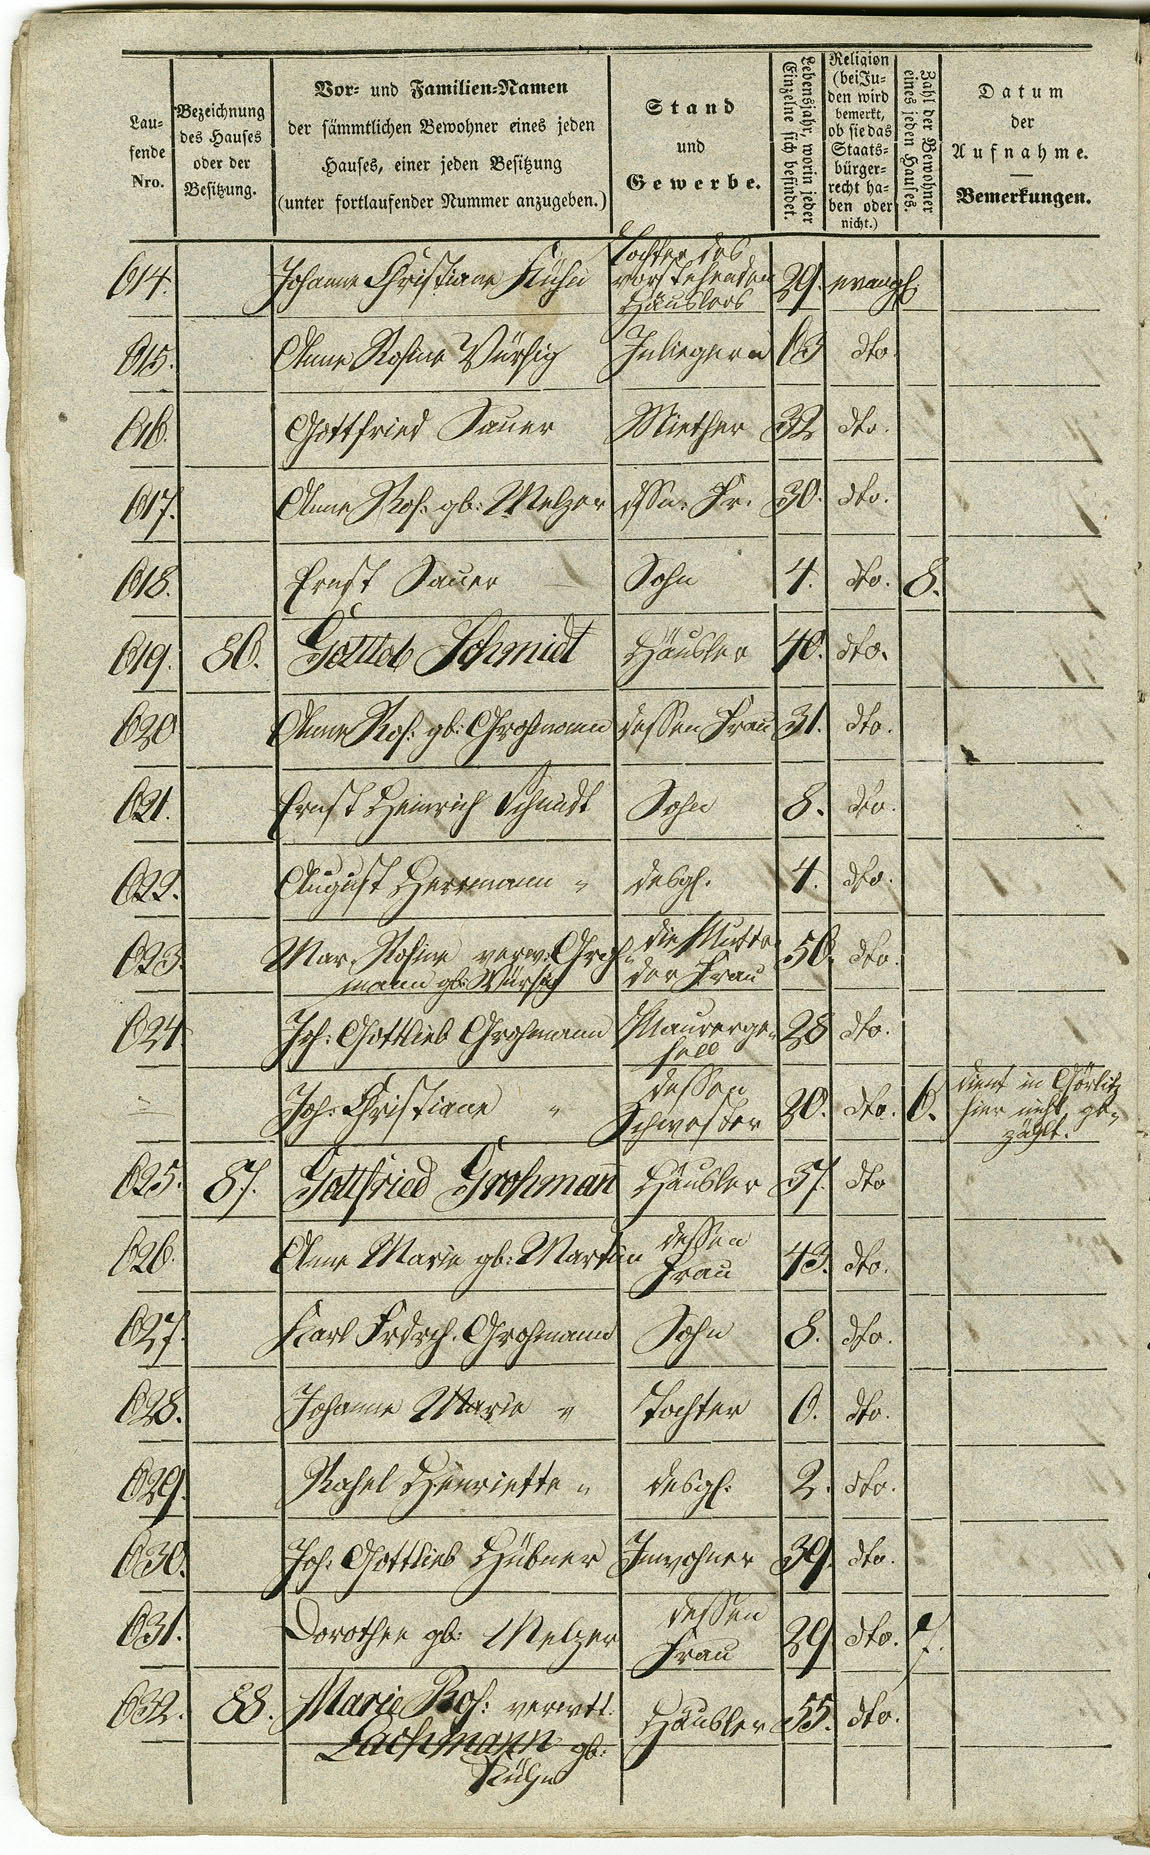 Lau-
fende
Nro.
Bezeichnung
des Hauses
oder der
Besitzung.
Vor- und Familien-Namen
der sämmtlichen Bewohner eines jeden
Hauses, einer jeden Besitzung
(unter fortlaufender Nummer anzugeben.)
Stand
und
Gewerbe.
Lebensjahr, worin jeder
Einzelne sich befindet.
Religion
(bei Ju-
den wird
bemerkt,
ob sie das
Staats-
bürger-
recht ha-
ben oder
nicht.)
Zahl der Bewohner
eines jeden Hauses.
Datum
der
Aufnahme.
Bemerkungen.
614. Johanne Christiane Kühn Tochter des
vorstehenden
Häuslers 29. evangl.
615. Anne Rosine Würsig Inliegerin 63 dto.
616. Gottfried Sauer Miether 32 dto.
617. Anne Ros: gb: Melzer dssn. Fr. 30. dto.
618. Ernst Sauer Sohn 4. dto. 8.
619. 86. Gottlieb Schmidt Häusler 40. dto.
620 Anne Ros: gb: Großmann dessen Frau 31. dto.
621. Ernst Heinrich Schmidt Sohn 8. dto.
622. August Herrmann " desgl. 4. dto.
623. Mar. Rosine verw: Groß-
mann gb: Würsig die Mutter
der Frau 56. dto.
624 Joh: Gottlieb Großmann Maurerge-
sell 28 dto.
Joh: Christiane " dessen
Schwester 20. dto. 6. dient in Görlitz
hier nicht ge-
zählt.
625. 87. Gottfried Großmann Häusler 57. dto
626. Anne Marie gb: Martin dessen
Frau 43. dto.
627. Karl Frdrch. Großmann Sohn 8. dto.
628. Johanne Marie " Tochter 6. dto.
629. Rahel Henriette " desgl. 2. dto.
630. Joh: Gottlieb Hübner Inwohner 39. dto.
631. Dorothee gb: Melzer dessen
Frau 29 dto. 7.
632. 88. Marie Ros: verwtt.
Lachmann gb:
Kühn Häusler 55. dto.